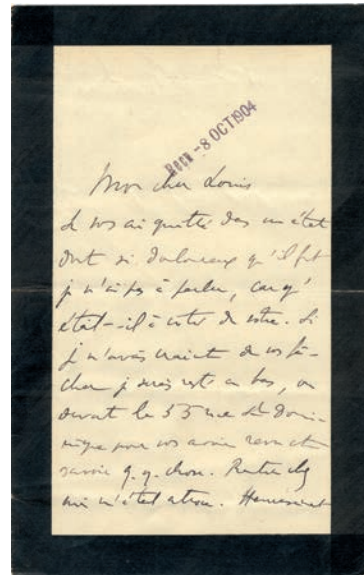 Recd -8 OCT 1904
Mon cher Louis
Je vous ai quitté dans un état
dont si douloureux qu'il fût
je n'ai pas à parler, car qu'
était-il à côté du vôtre. Si
je n'avais craint de vous fâ-
cher je serais resté en bas, ou
devant le 35 rue St Domi-
nique pour vous avoir revu et
savoir q.q. chose. Rentré chez
moi m'étais